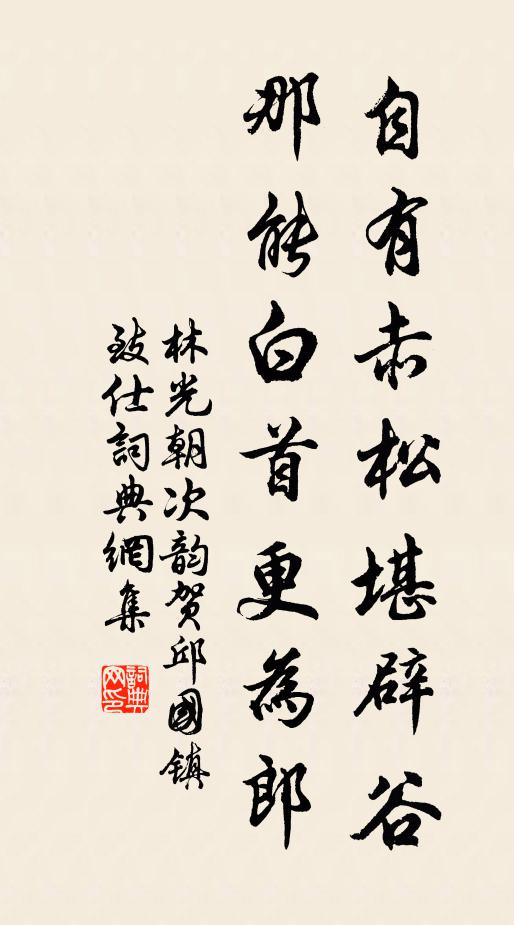 自有赤松堪辟谷
那能白首更為郎
林光朝次韵贺邱國镇
致仕詞典網集
詞典
网印